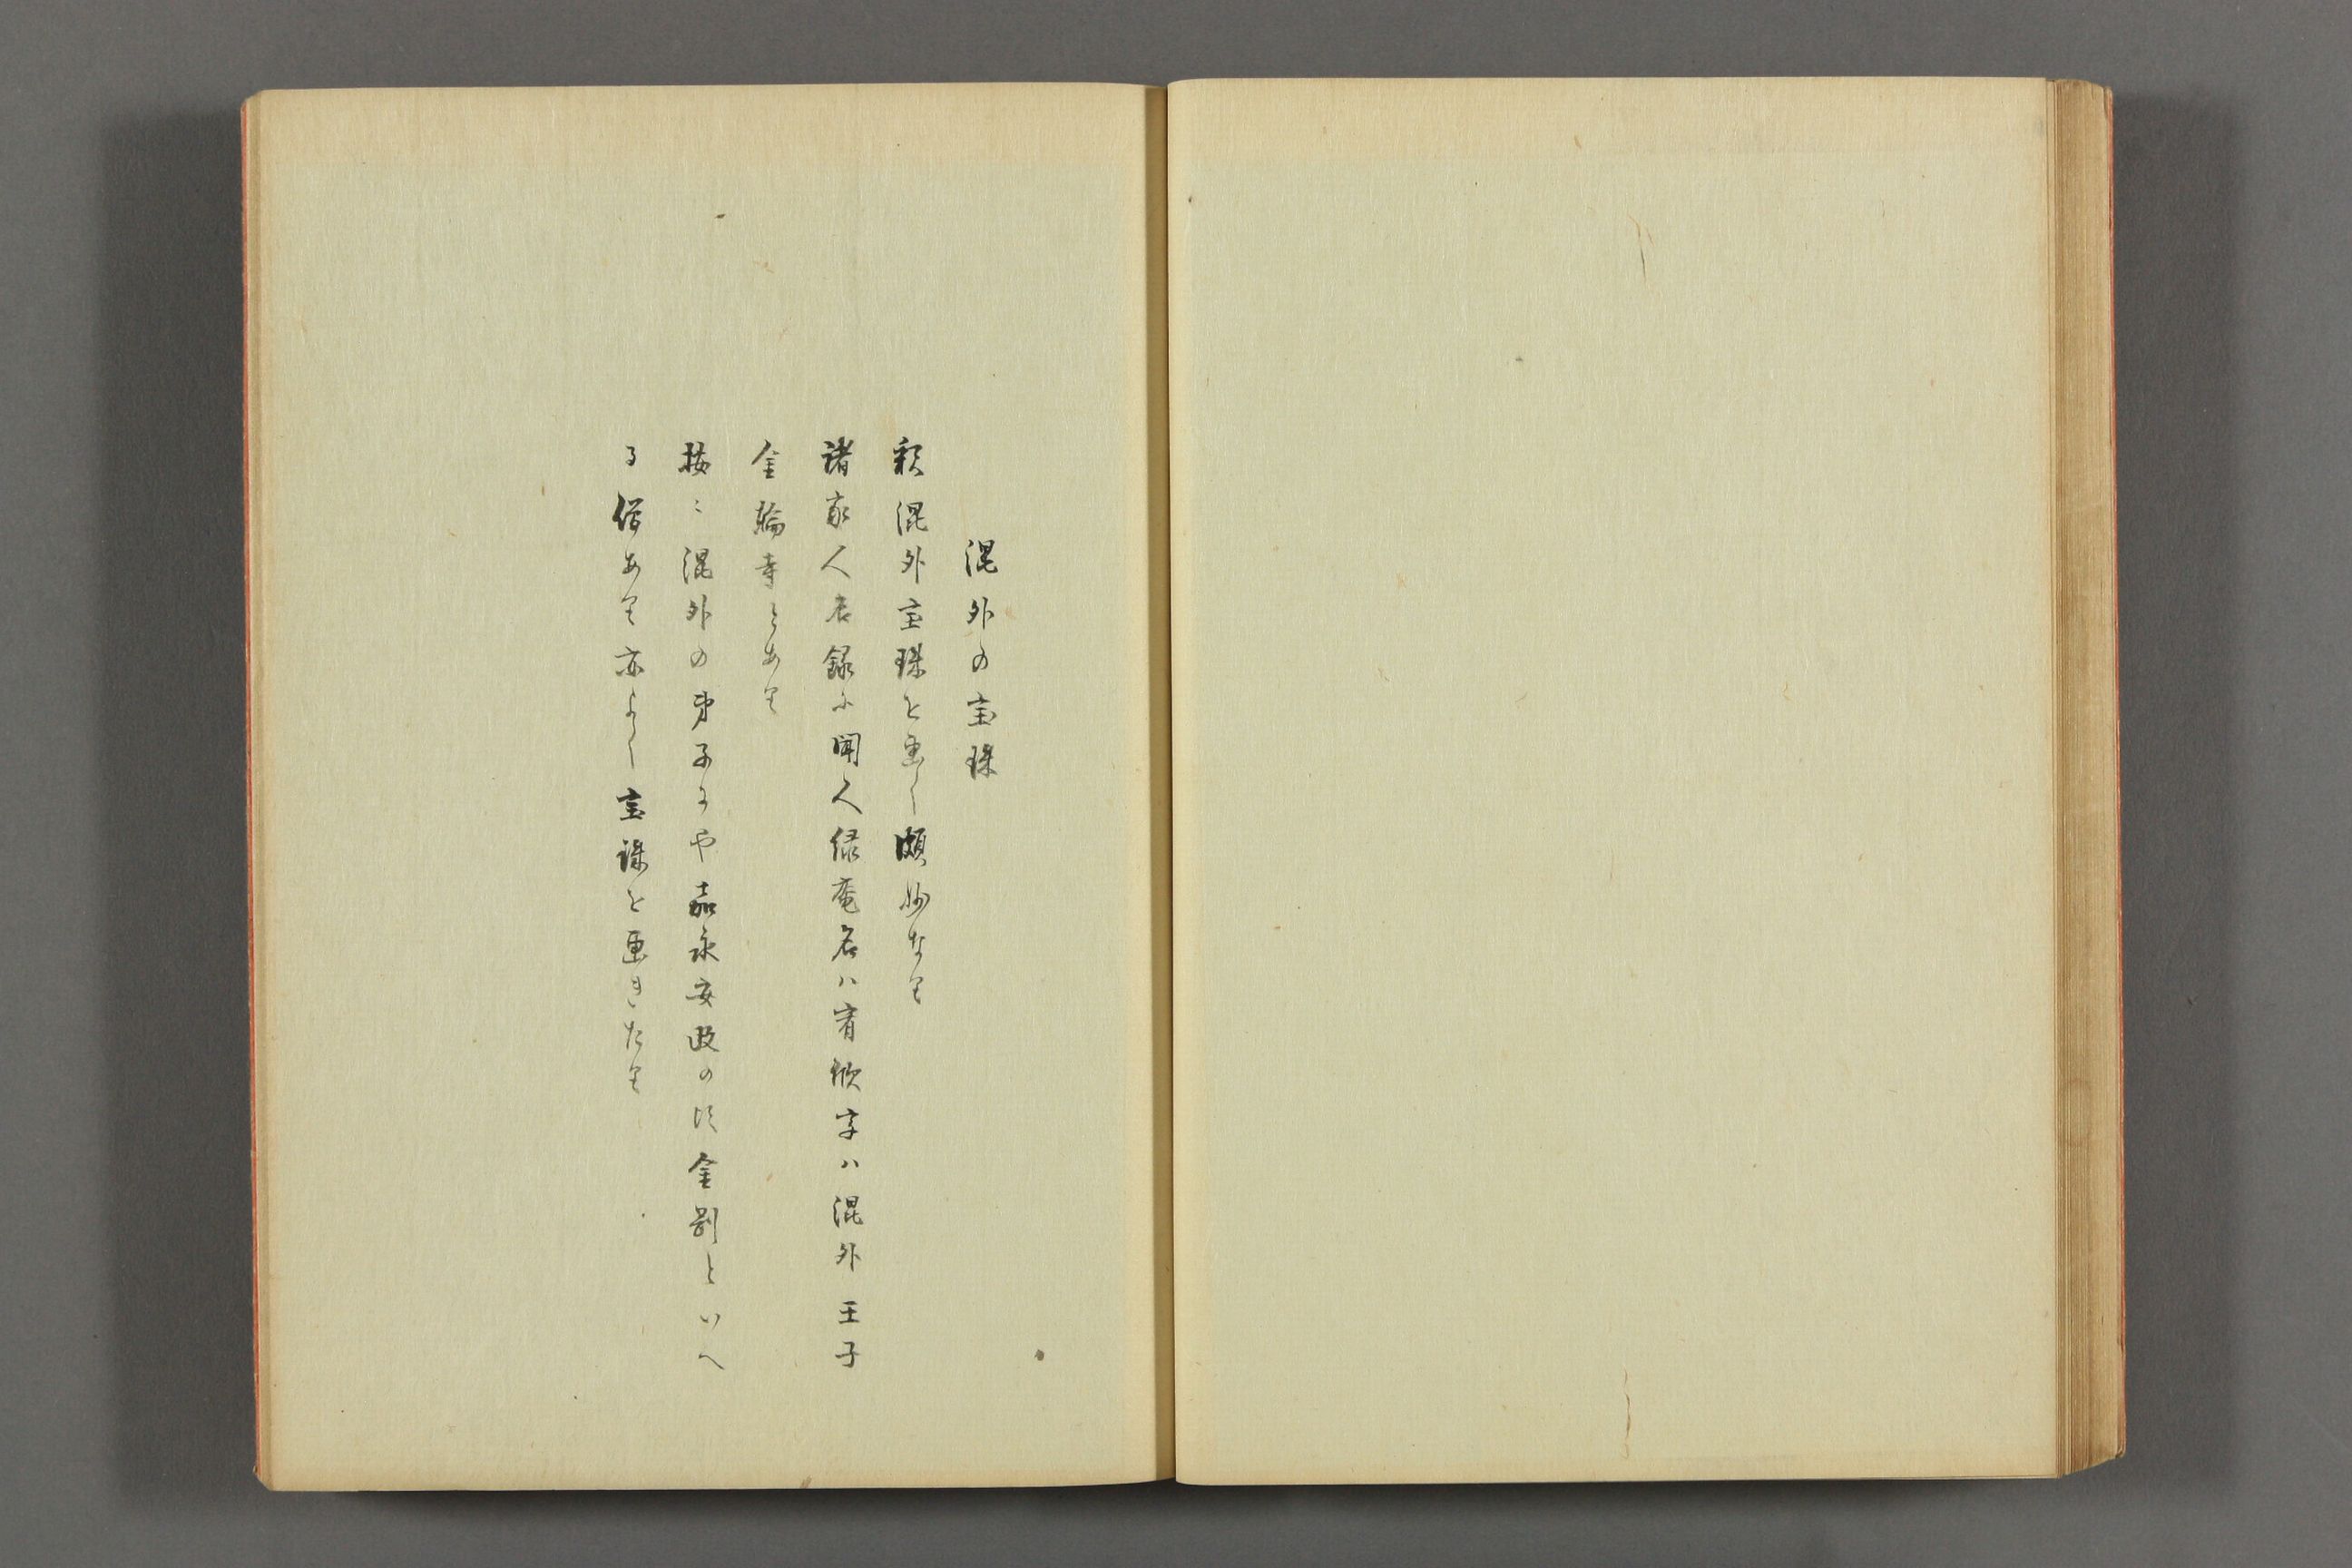 混外の宝珠
釈混外宝珠を画く頗妙なり
諸家人名録に聞人緑庵名ハ宥欣字ハ混外王子
金輪寺とあり
按ニ混外の弟子にや嘉永安政の頃金剛といへ
る僧あり亦よく宝珠を画きたり